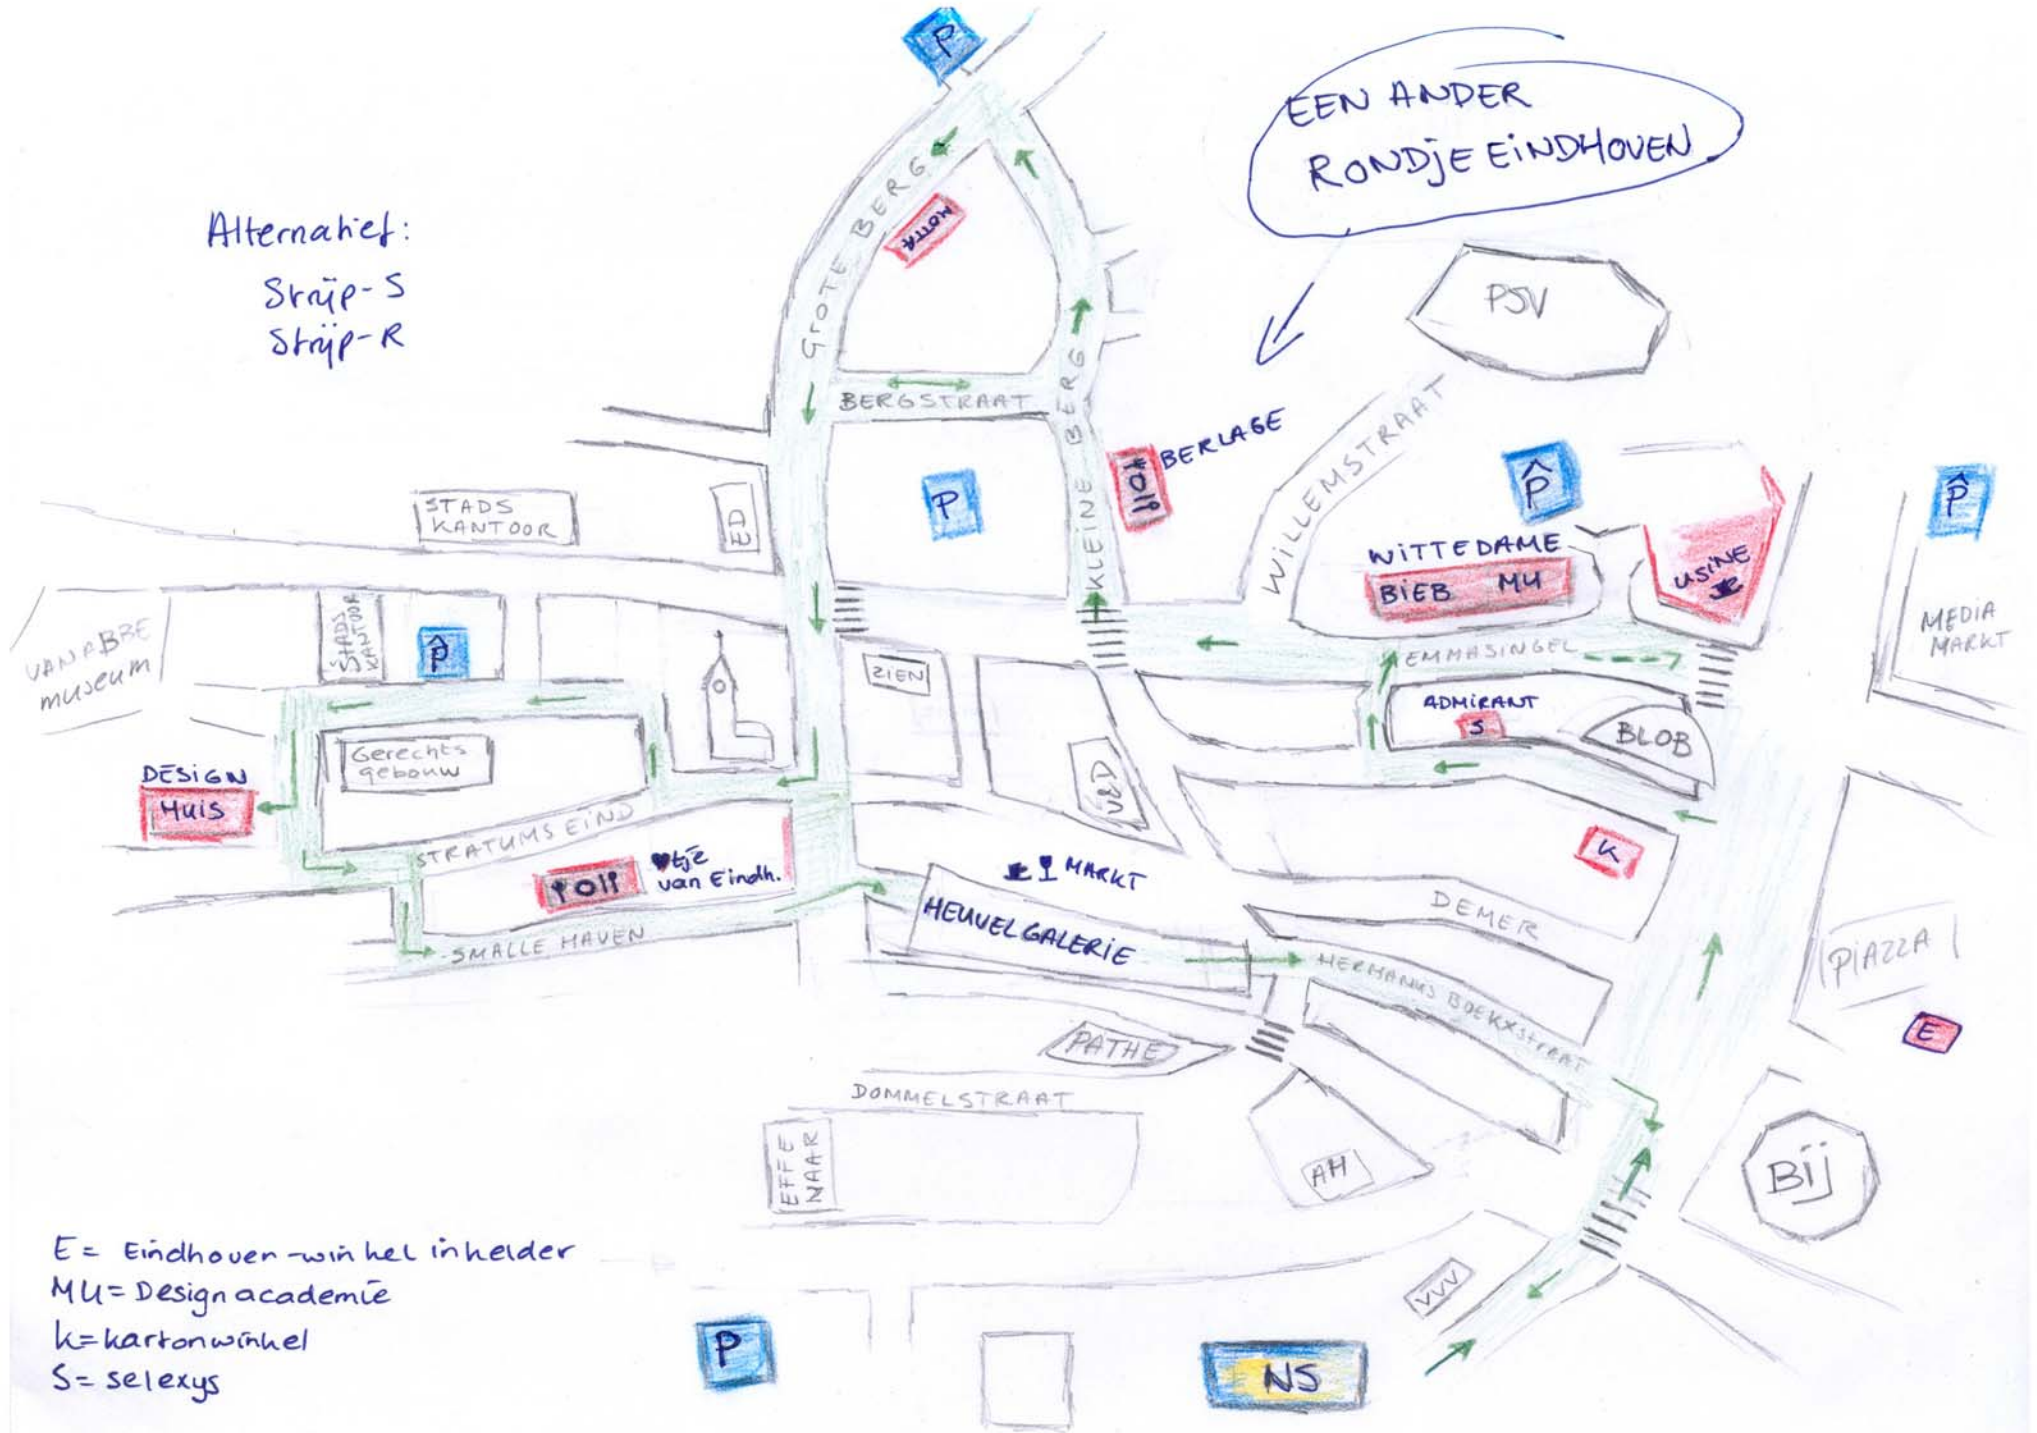 P
EEN ANDER
RONDJE EINDHOVEN
Alternatief:
Strijp-S
Strijp-R
GROTE BERG
MOTTA
PSV
BERGSTRAAT
KLEINE BERG
BERLAGE
WILLEMSTRAAT
STADS
KANTOOR
ED
P
P
P
WITTEDAME
BIEB MU
USINE
MEDIA
MARKT
VAN ABBE
museum
STADS
KANTOOR
P
ZIEN
EMMASINGEL
ADMIRANT
S
BLOB
Gerechts
gebouw
DESIGN
HUIS
V&D
STRATUMSEIND
♥tje
van Eindh.
MARKT
K
DEMER
HEUVELGALERIE
SMALLE HAVEN
HERMANUS BOEKXSTRAAT
PIAZZA
E
PATHE
DOMMELSTRAAT
EFFE
NAAR
AH
BIJ
E = Eindhoven-winkel inhelder
MU = Design academie
K = kartonwinkel
S = selexys
VVV
P
NS